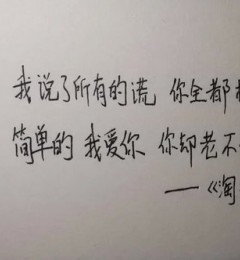 我说了所有的谎 你全都
简单的 我爱你 你却老不
——《淘